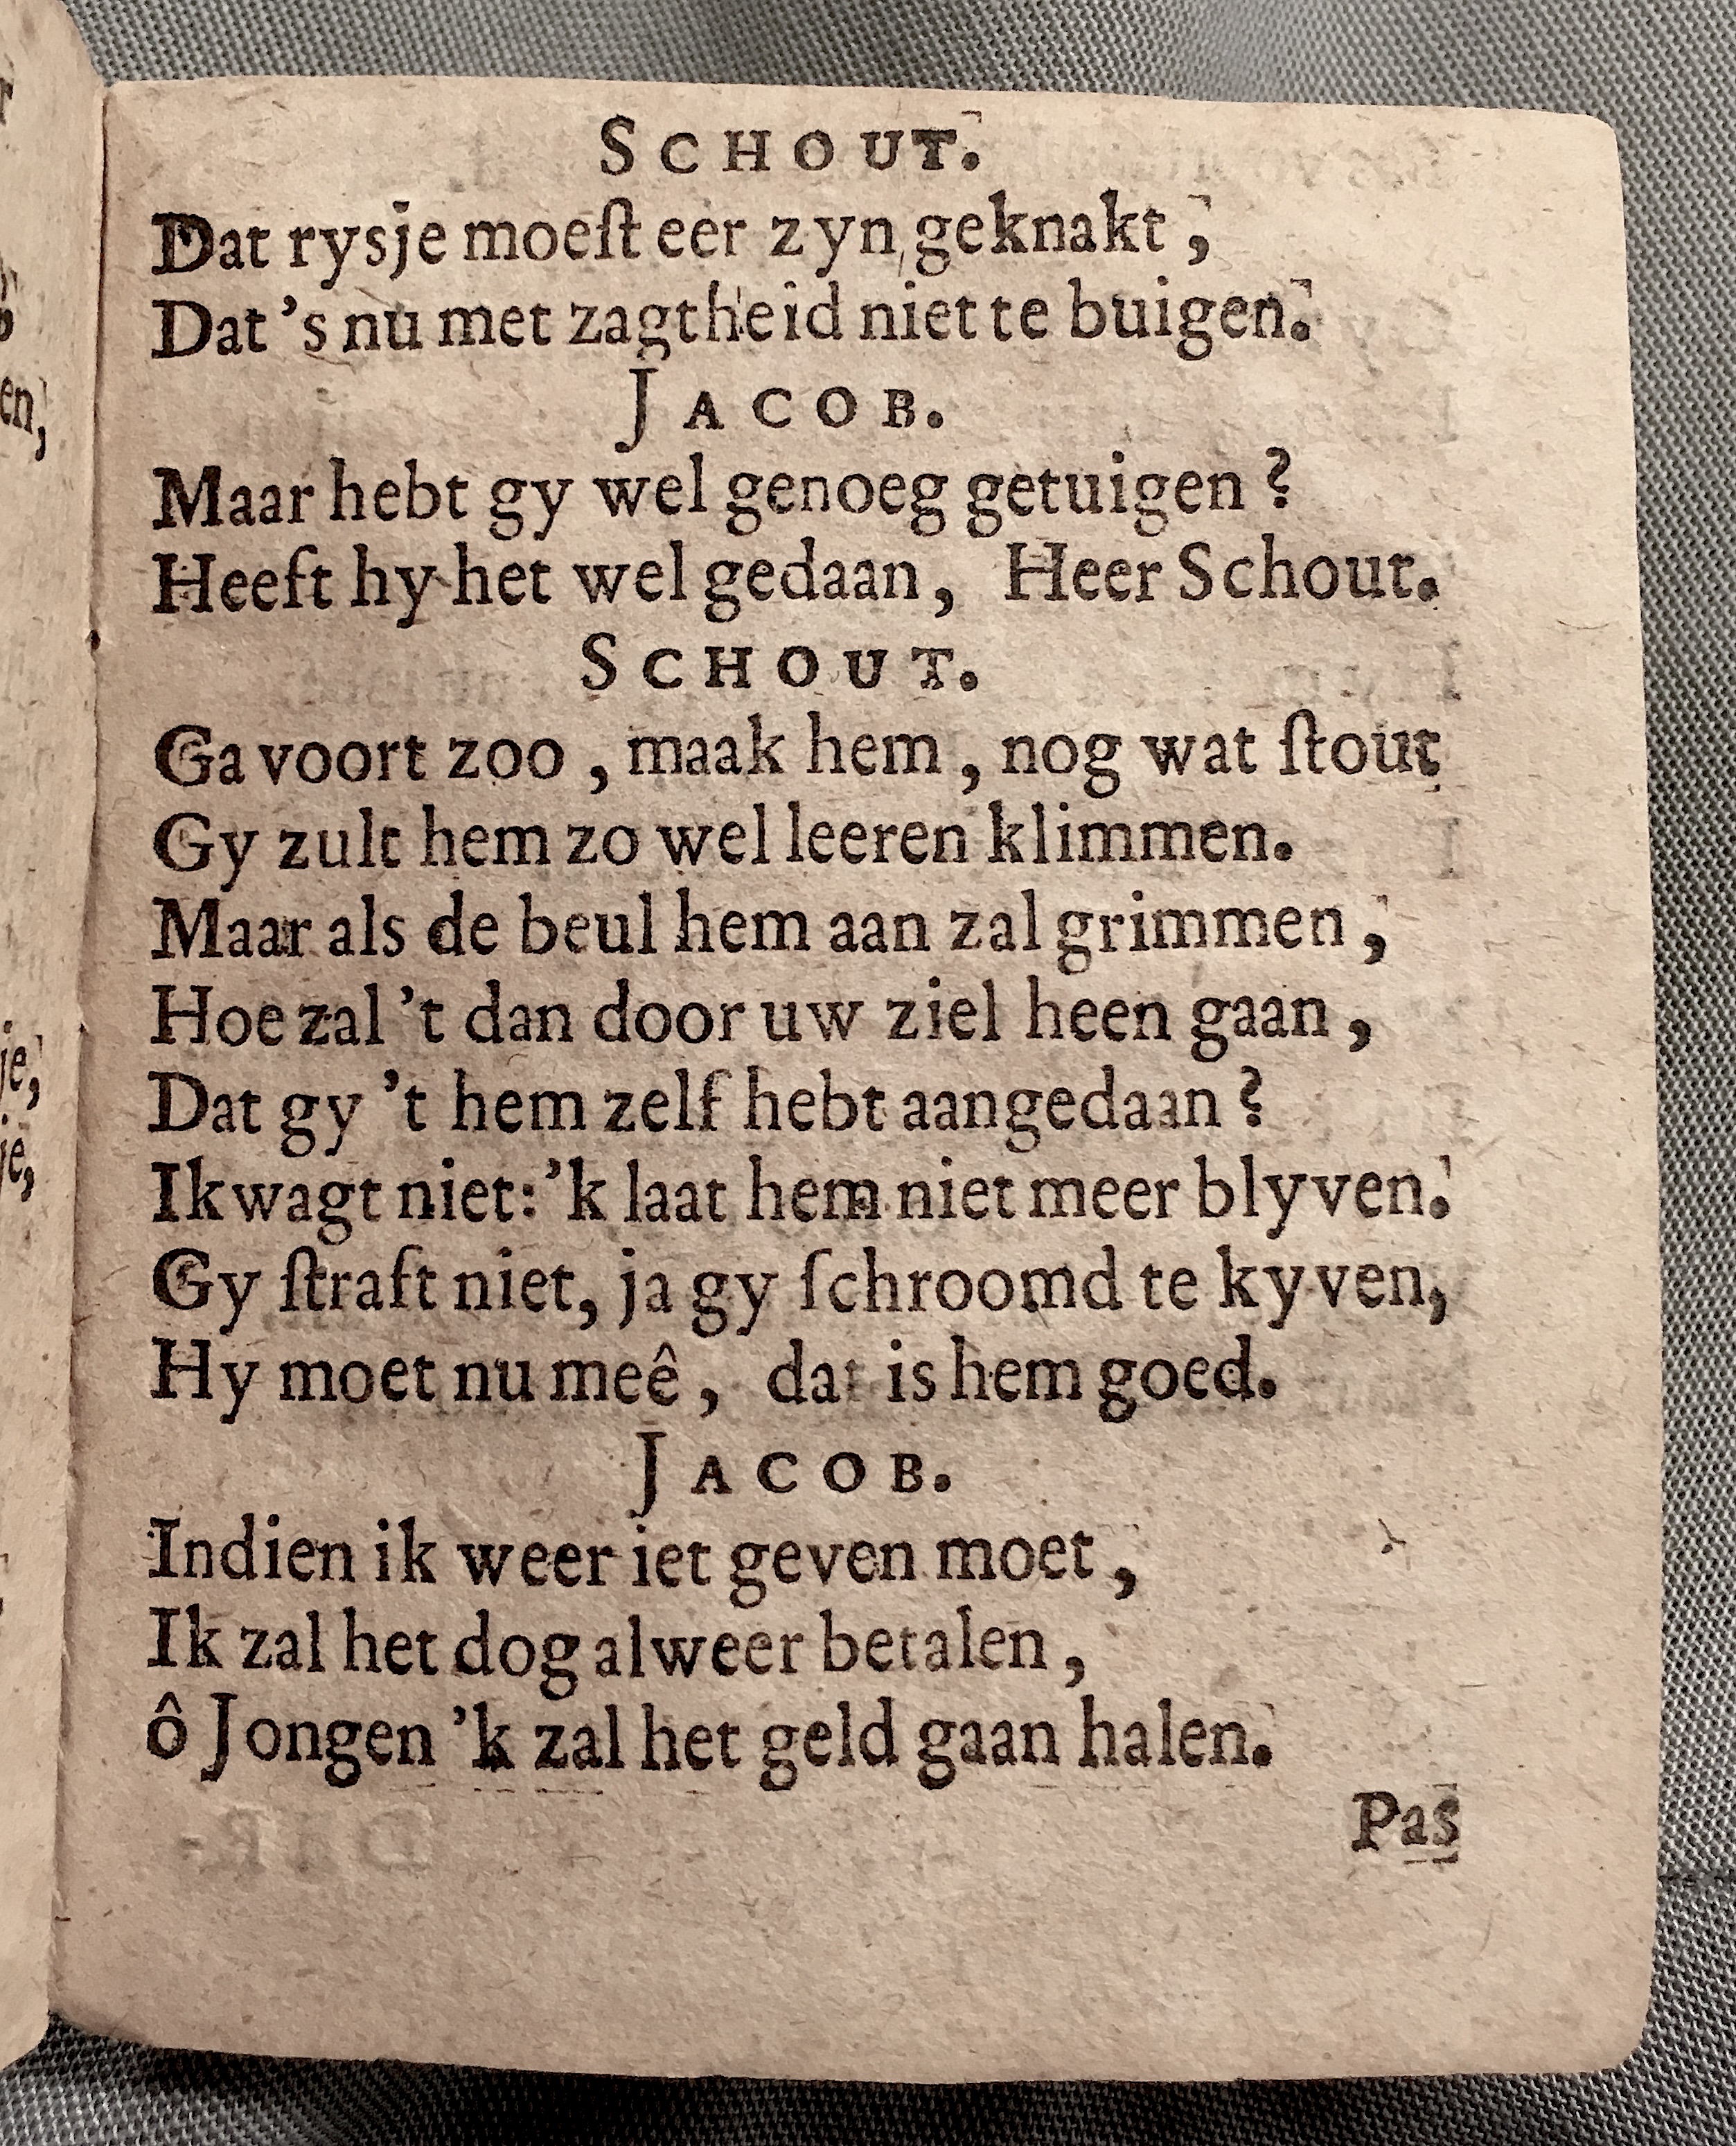 SCHOUT.
Dat rysje moeſt eer zyn geknakt,
Dat 's nu met zagtheid niet te buigen.
JACOB.
Maar hebt gy wel genoeg getuigen?
Heeft hy het wel gedaan, Heer Schout.
SCHOUT.
Ga voort zoo, maak hem, nog wat ſtout
Gy zult hem zo wel leeren klimmen.
Maar als de beul hem aan zal grimmen,
Hoe zal 't dan door uw ziel heen gaan,
Dat gy 't hem zelf hebt aangedaan?
Ik wagt niet: 'k laat hem niet meer blyven.
Gy ſtraft niet, ja gy ſchroomd te kyven,
Hy moet nu meê, dat is hem goed.
JACOB.
Indien ik weer iet geven moet,
Ik zal het dog al weer betalen,
ô Jongen 'k zal het geld gaan halen.
Pas